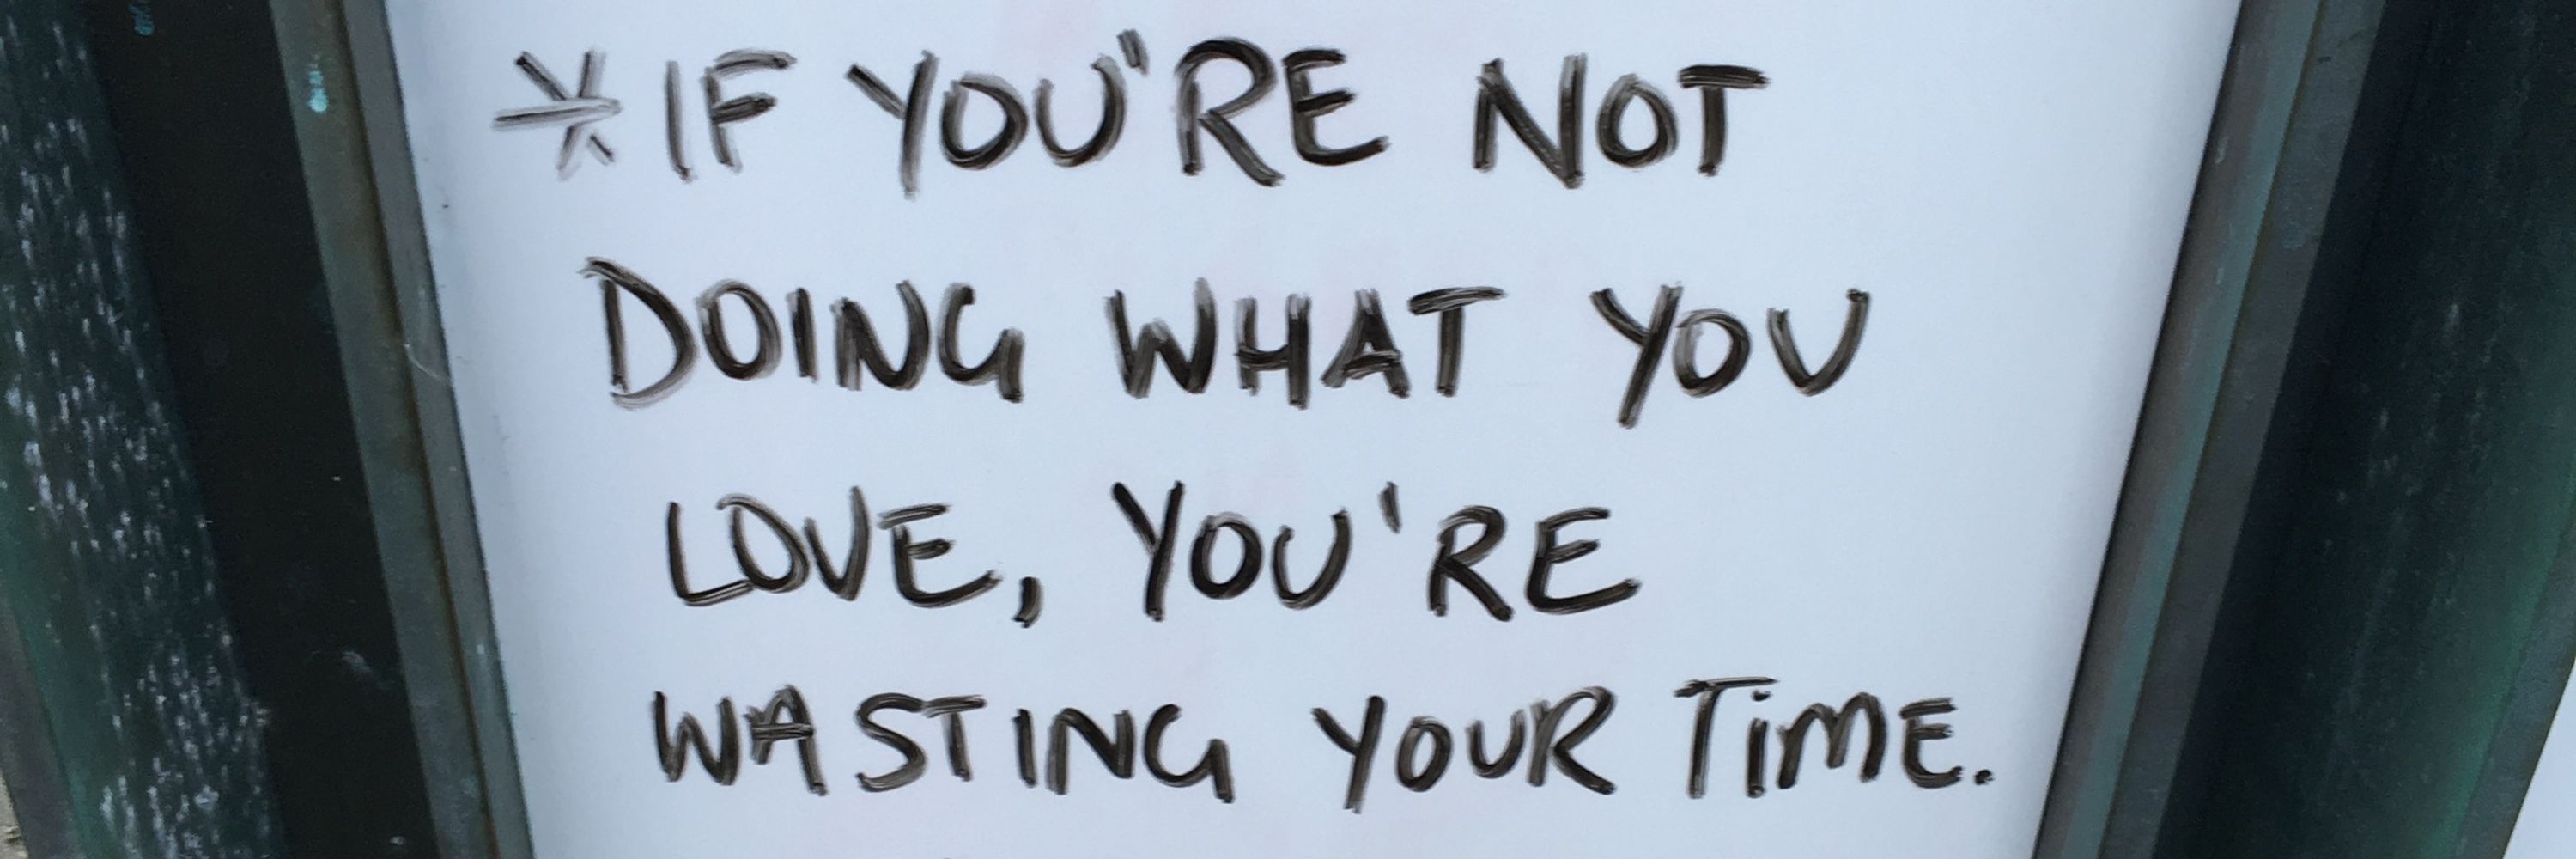 *IF YOU'RE NOT
DOING WHAT YOU
LOVE, YOU'RE
WASTING YOUR TiME.